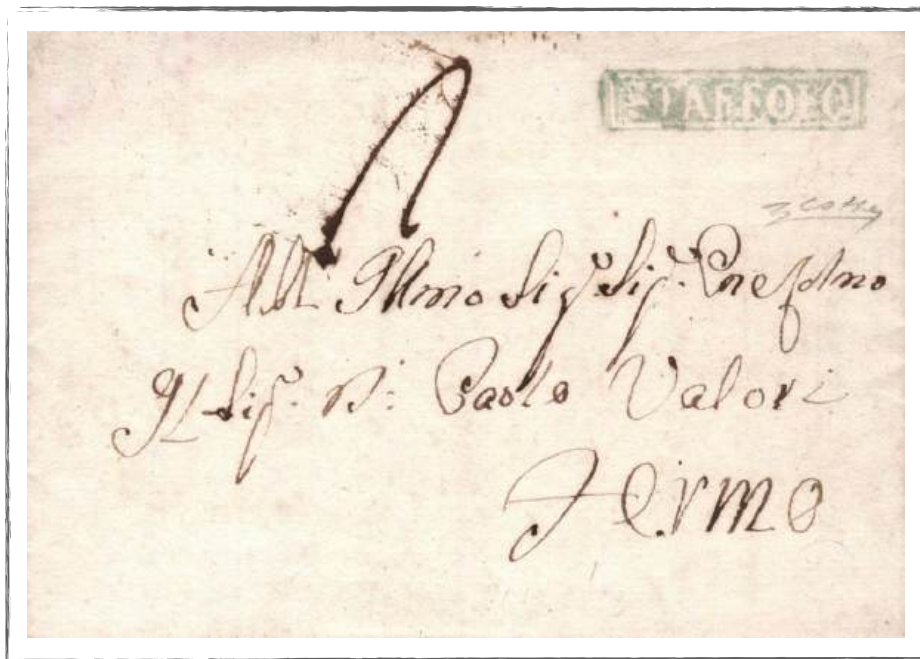 STAFFOLO
All Illmo Sig.r Sig.r Pne Colmo
Il Sig.r D: Paolo Valori
Fermo